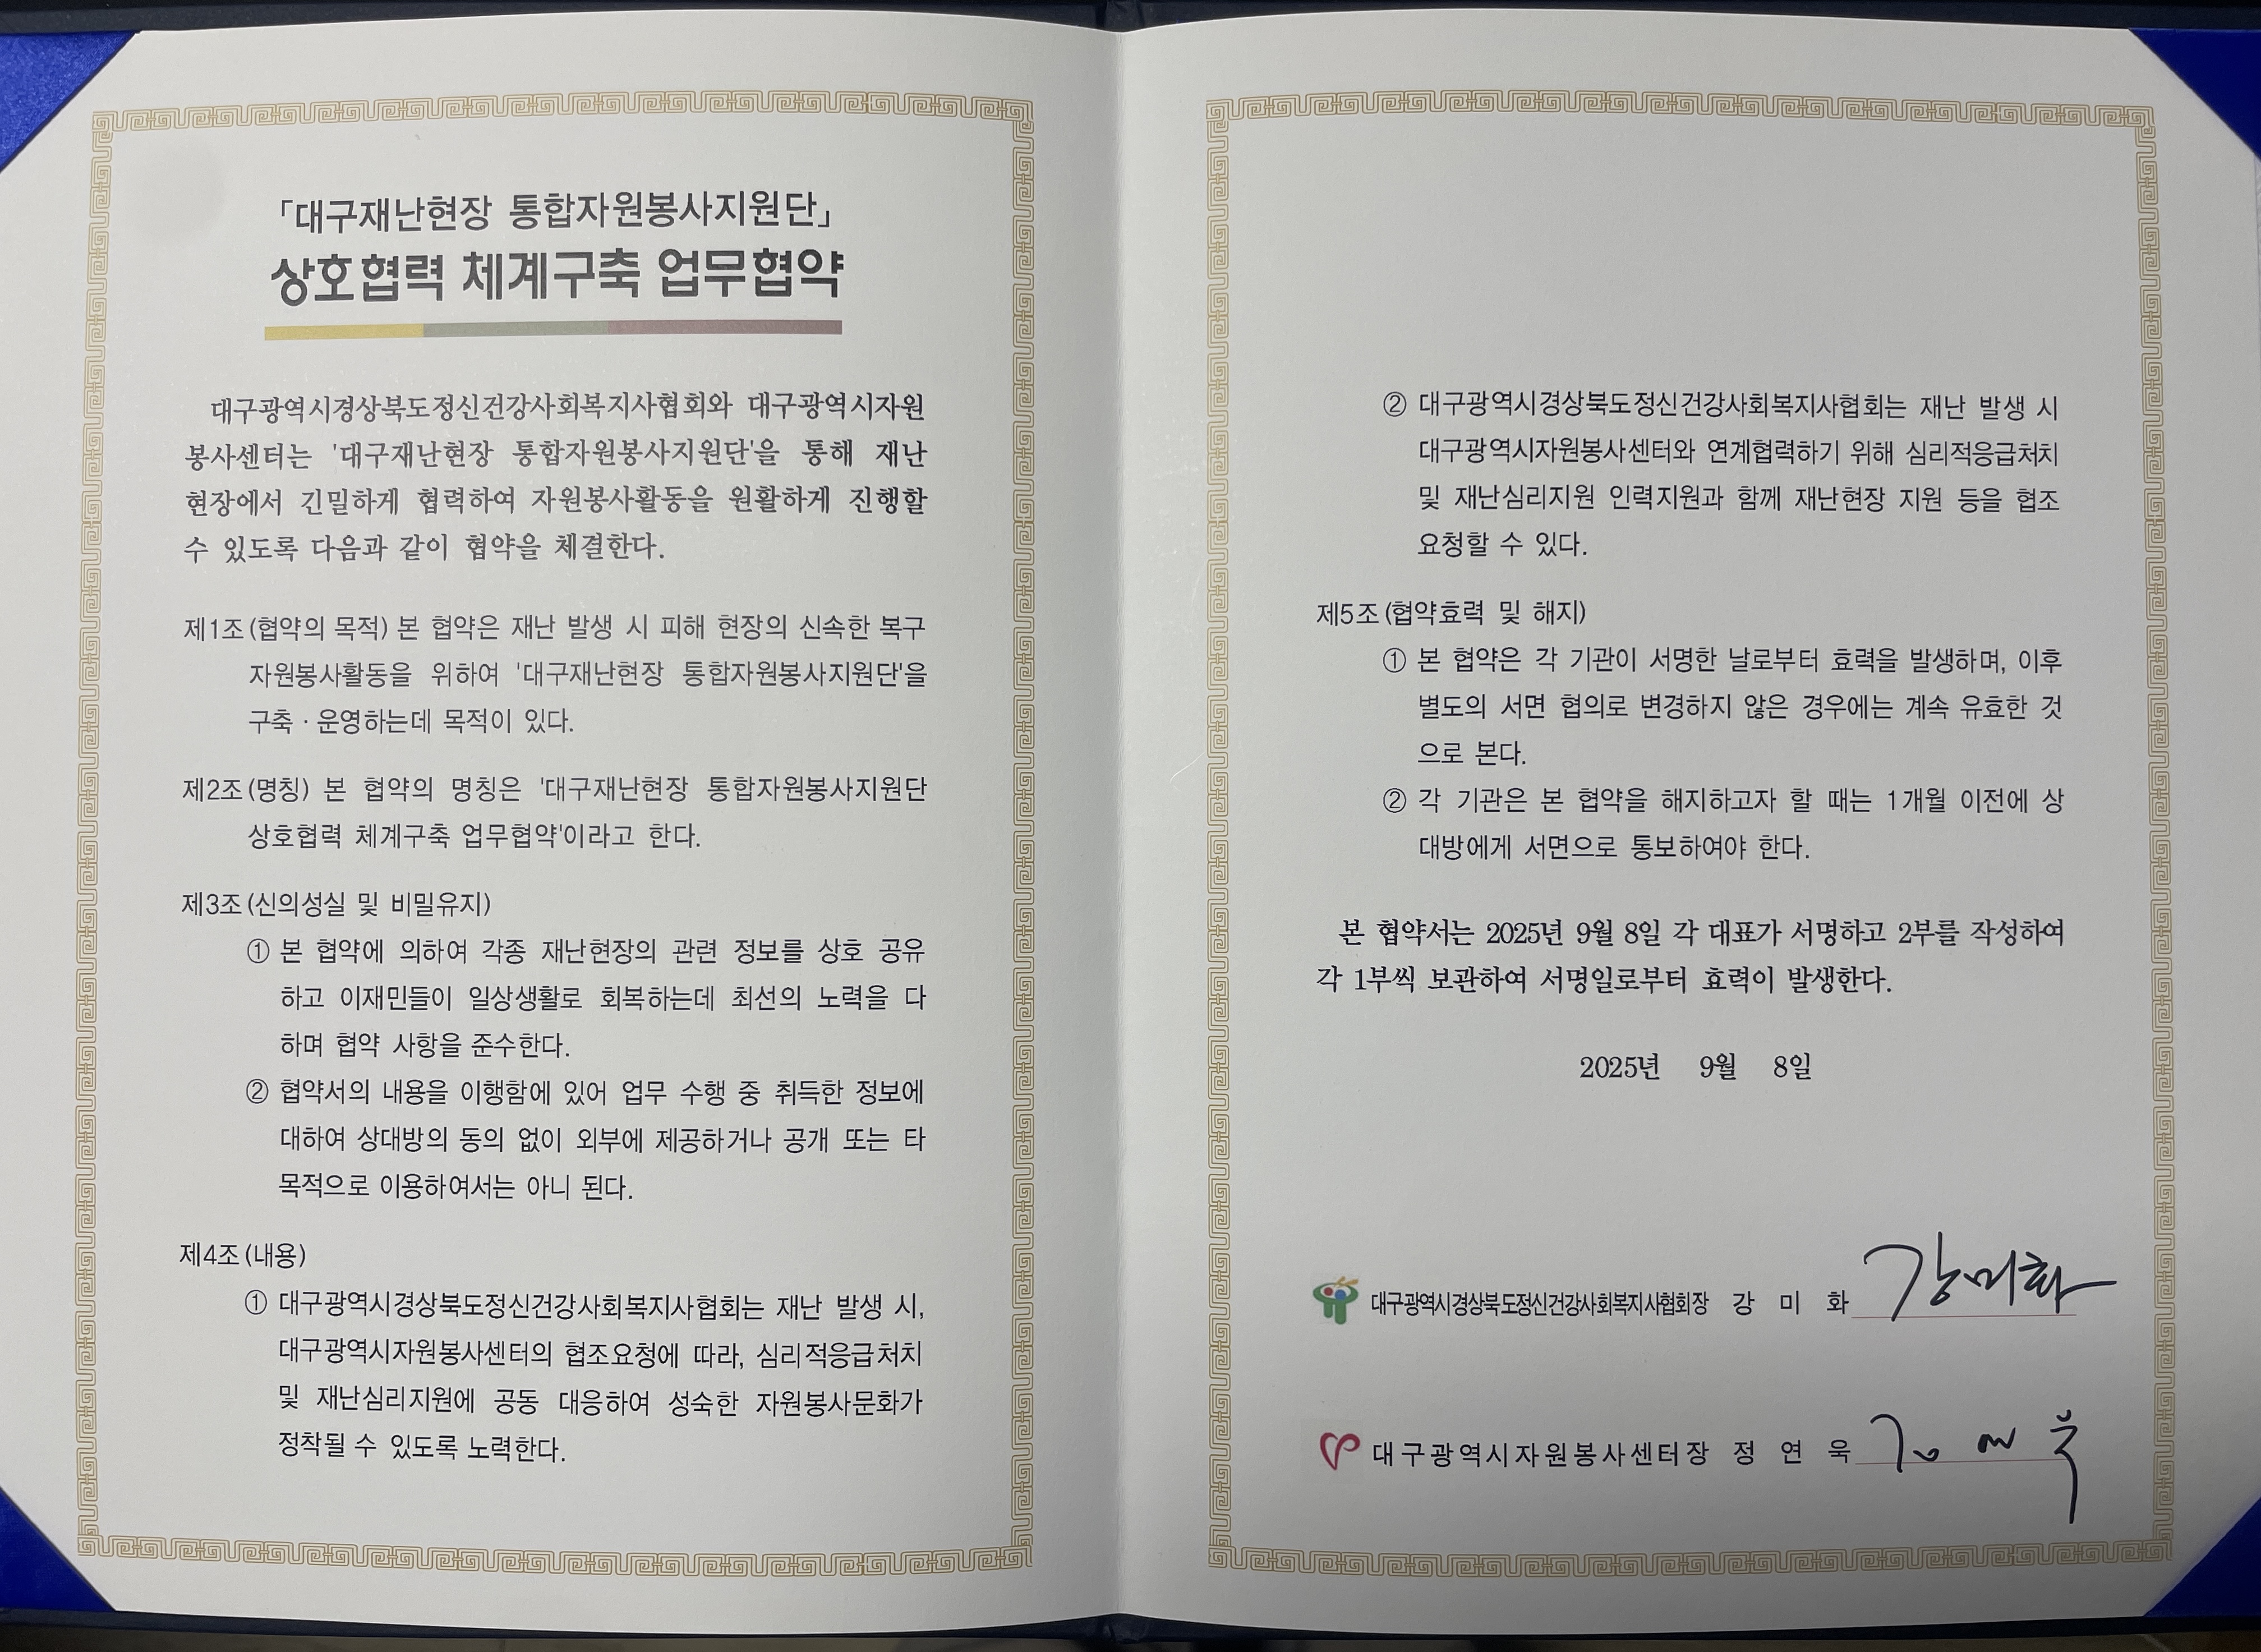 「대구재난현장 통합자원봉사지원단」
상호협력 체계구축 업무협약
대구광역시경상북도정신건강사회복지사협회와 대구광역시자원
봉사센터는 '대구재난현장 통합자원봉사지원단'을 통해 재난
현장에서 긴밀하게 협력하여 자원봉사활동을 원활하게 진행할
수 있도록 다음과 같이 협약을 체결한다.
제1조(협약의 목적) 본 협약은 재난 발생 시 피해 현장의 신속한 복구
자원봉사활동을 위하여 '대구재난현장 통합자원봉사지원단'을
구축·운영하는데 목적이 있다.
제2조(명칭) 본 협약의 명칭은 '대구재난현장 통합자원봉사지원단
상호협력 체계구축 업무협약'이라고 한다.
제3조(신의성실 및 비밀유지)
① 본 협약에 의하여 각종 재난현장의 관련 정보를 상호 공유
하고 이재민들이 일상생활로 회복하는데 최선의 노력을 다
하며 협약 사항을 준수한다.
② 협약서의 내용을 이행함에 있어 업무 수행 중 취득한 정보에
대하여 상대방의 동의 없이 외부에 제공하거나 공개 또는 타
목적으로 이용하여서는 아니 된다.
제4조(내용)
① 대구광역시경상북도정신건강사회복지사협회는 재난 발생 시,
대구광역시자원봉사센터의 협조요청에 따라, 심리적응급처치
및 재난심리지원에 공동 대응하여 성숙한 자원봉사문화가
정착될 수 있도록 노력한다.
② 대구광역시경상북도정신건강사회복지사협회는 재난 발생 시
대구광역시자원봉사센터와 연계협력하기 위해 심리적응급처치
및 재난심리지원 인력지원과 함께 재난현장 지원 등을 협조
요청할 수 있다.
제5조(협약효력 및 해지)
① 본 협약은 각 기관이 서명한 날로부터 효력을 발생하며, 이후
별도의 서면 협의로 변경하지 않은 경우에는 계속 유효한 것
으로 본다.
② 각 기관은 본 협약을 해지하고자 할 때는 1개월 이전에 상
대방에게 서면으로 통보하여야 한다.
본 협약서는 2025년 9월 8일 각 대표가 서명하고 2부를 작성하여
각 1부씩 보관하여 서명일로부터 효력이 발생한다.
2025년 9월 8일
대구광역시경상북도정신건강사회복지사협회장 강 미 화 강미화
대구광역시자원봉사센터장 정 연 욱